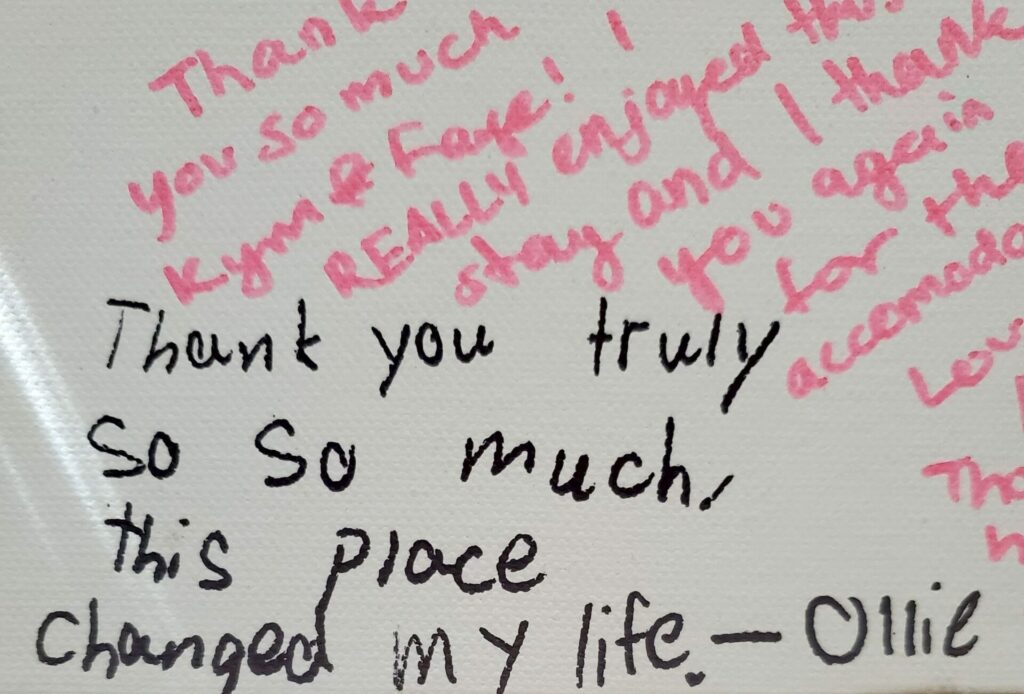 Thank
you so much
Kym & Faye! I
REALLY enjoyed this
stay and I thank
you again
for the
Thank you truly
so so much,
this place
changed my life. — Ollie